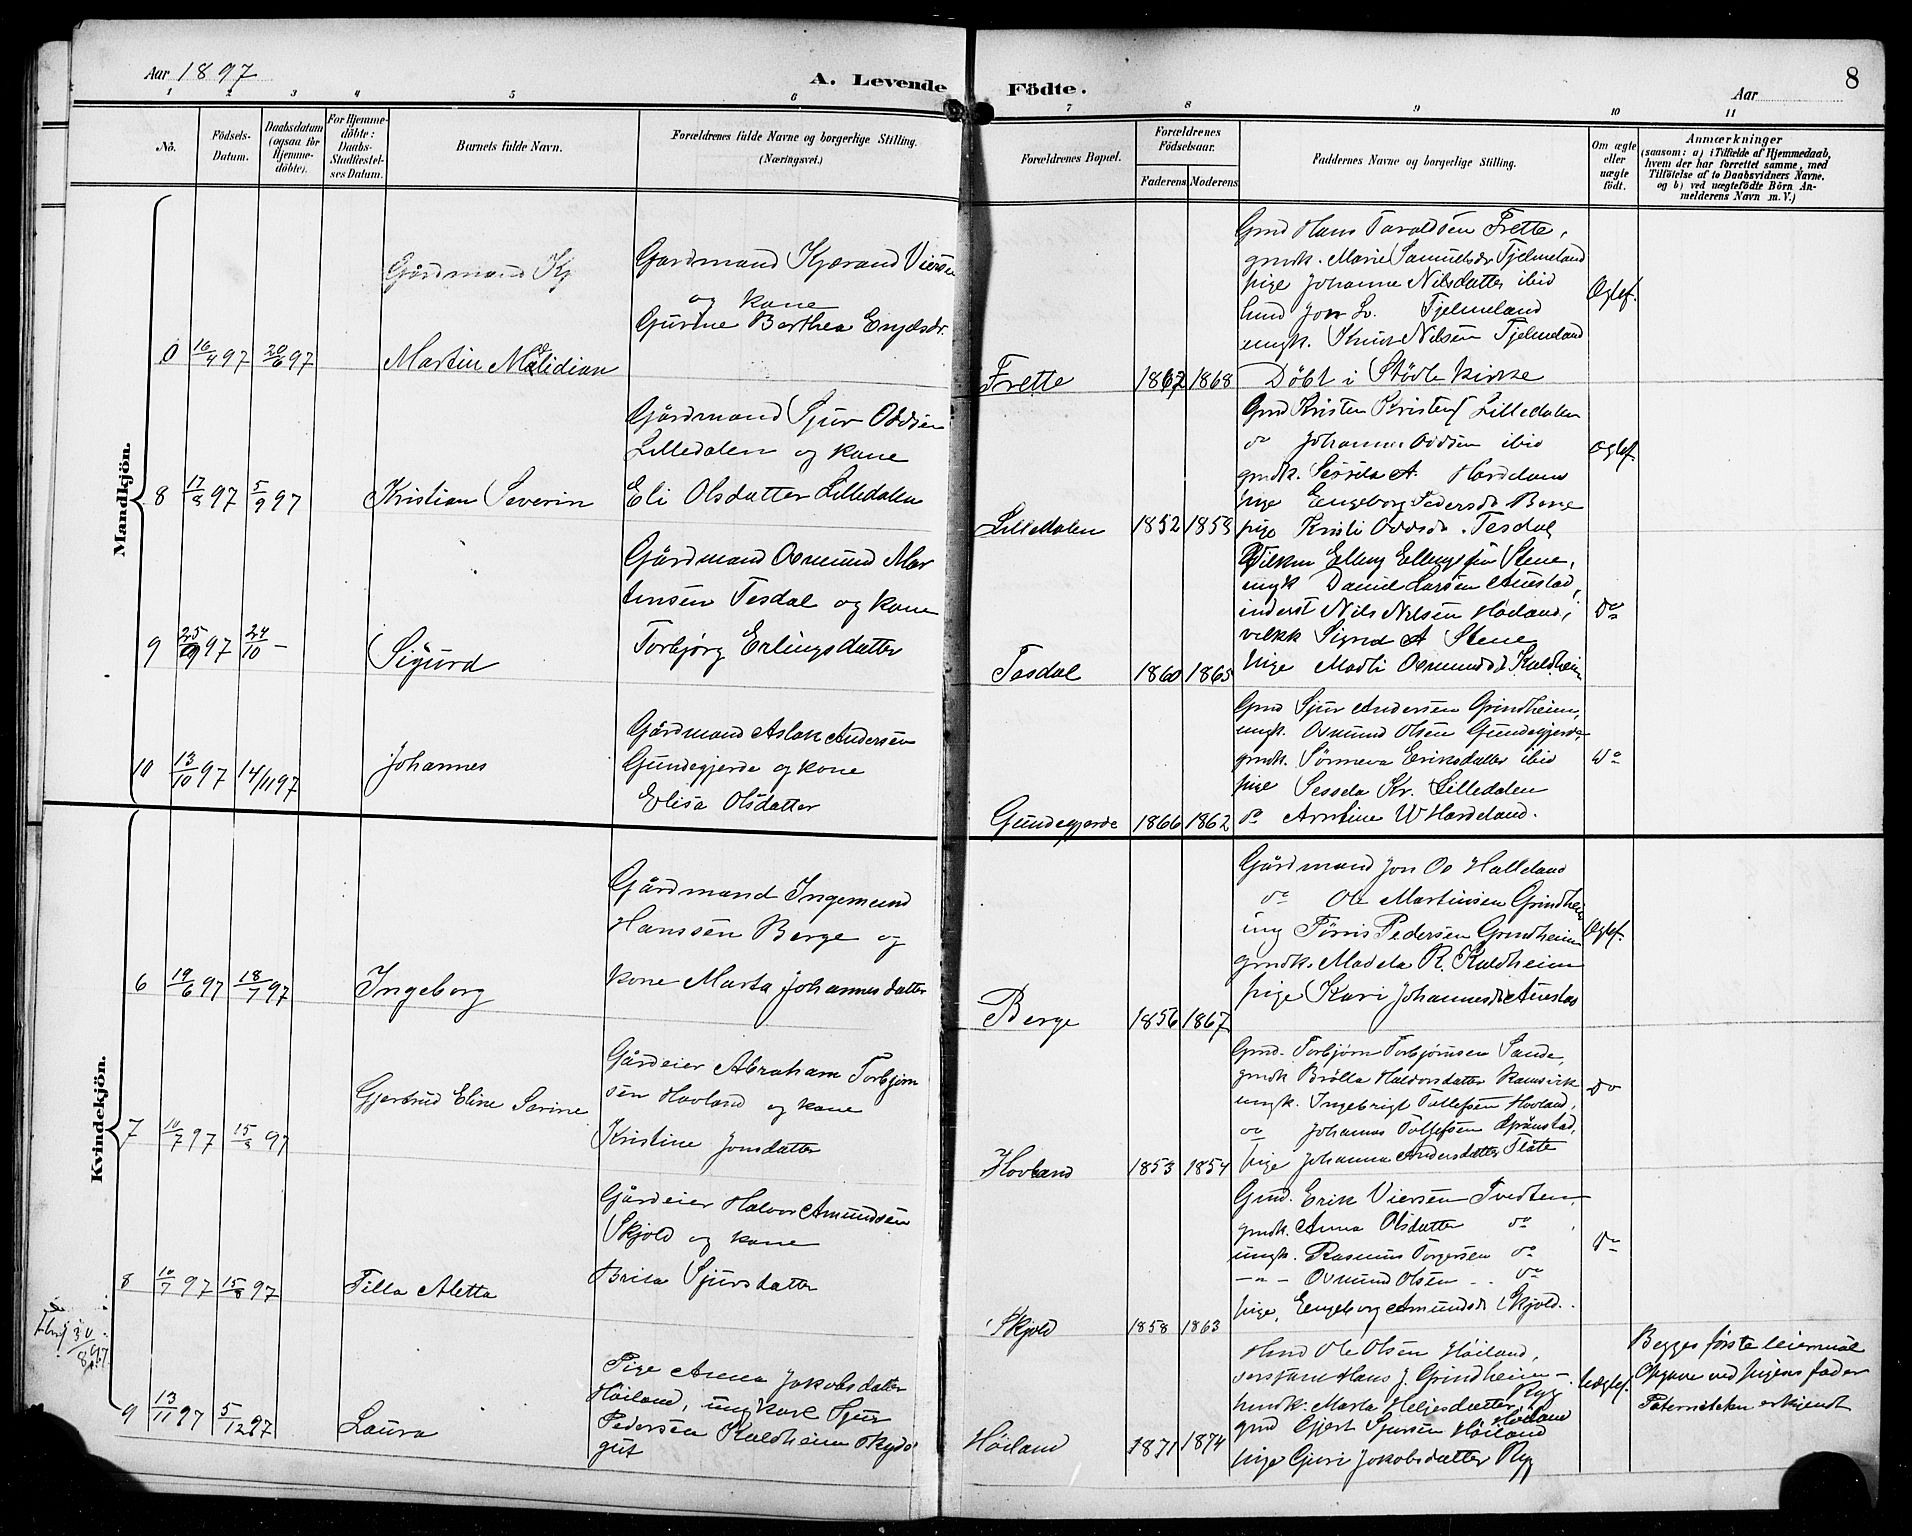 Aar 1897
A. Levende Födte.
Aar
8
1 2 3 4 5 6 7 8 9 10 11
No.
Födsels-
Datum.
Daabsdatum
(ogsaa for
Hjemme-
döbte).
For Hjemme-
döbte:
Daabs-
Stadfæstel-
ses Datum.
Barnets fulde Navn.
Forældrenes fulde Navne og borgerlige Stilling.
(Næringsvei.)
Forældrenes Bopæl.
Forældrenes
Födselsaar.
Faderens.
Moderens.
Faddernes Navne og borgerlige Stilling.
Om ægte
eller
uægte
födt.
Anmærkninger
(saasom: a) i Tilfælde af Hjemmedaab,
hvem der har forrettet samme, med
Tilföielse af to Daabsvidners Navne.
og b) ved uægtefödte Börn An-
melderens Navn m. V.)
Mandkjön.
Gårdmand Kj
0 16/4 97 20/6 97 Martin Melidian
Gardmand Kjærand Viersen
og kone
Gurine Berthea Enydsdr.
Frette 1867 1868
Gmd Hans Taraldsen Frette,
gmdk. Marie Samuelsdr Tjelmeland
pige Johanne Nilsdatter ibid
Tjelmeland
ungk. Knut Nilsen Tjelmeland
Døbt i Stødle kirke
Ægtef.
8 17/8 97 5/9 97 Kristian Severin
Gårdmand Sjur Oddsen
Lilledalen og kone
Eli Olsdatter Lilledalen
Lilledalen 1852 1858
Gmd Kristen Lilledalen
do Johannes Oddsen ibid
gmdk. Sessela A.
pige Engeborg Pedersdr Berge
pige Kristi Oddsdr. Tesdal
Ægtef.
9 25/9 97 24/10 – Sigurd
Gårdmand Osmund Mar
tinsen Tesdal og kone
Torbjørg Erlingsdatter
Tesdal 1860 1865
Elling Ellingsen Stene,
ungk Daniel Larsen Auestad,
inderst Nils Nilsen Høiland,
Signa A Stene
pige Madli Osmundsd Kaldheim
do
10 13/10 97 14/11 97 Johannes
Gårdmand Aslak Andersen
Gundegjerde og kone
Elisa Olsdatter
Gundegjerde 1866 1862
Gmd Sjur Andersen Grindheim,
ungk. Osmund Olsen Gundegjerde
gmdk. Sønneva Eriksdatter ibid
pige Sessela Kr. Lilledalen
do W Hardeland.
do
Kvindekjön.
6 19/6 97 18/7 97 Ingeborg
Gårdmand Ingemund
Hanssen Berge og
kone Marta Johannesdatter
Berge 1856 1867
Gårdmand Jon Halleland
do Ole Martinsen Grindheim
ung Tørris Pedersen Grindheim
gmdk. Madela R. Kaldheim
pige Kari Johannesd Auestad
Ægtef.
7 10/7 97 15/8 97 Gjertrud Eline Serine
Gårdeier Abraham Torbjørn
sen Hovland og kone
Kristine Jonsdatter
Hovland 1853 1854
Gmd. Torbjørn Torbjørnsen Sande,
gmdk Haldorsdatter Ramsvik
ungk. Ingebrigt Tollefsen Hovland,
do Johannes Tollefsen Grønstad,
pige Johanna Andersdatter Fláte
do
8 10/7 97 15/8 97 Tilla Aletta
Gårdeier Halvor Amundsen
Skjold og kone
Brita Sjursdatter
Skjold 1858 1863
Gmd. Erik Viersen Tvedten
gmdk. Anna Olsdatter do
ungk. Rasmus Torgersen do
–"– Osmund Olsen do
pige, Engeborg Amundsd Skjold.
do
9 13/11 97 5/12 97 Laura
Pige Anna Jakobsdatter
Høiland, ungkarl Sjur
Pedersen Kaldheim skyds
gut
Høiland 1871 1874
Ole Olsen Høiland,
Hans J. Grindheim
Marta Heljesdatter Ryg
gmd Gjert Sjursen Høiland
Høiland
pige Guri Jakobsdatter Ryg
Uægtef.
Begges første leiermaal
Opgave ved pigens fader
Paterniteten erkjendt
30/8 97.